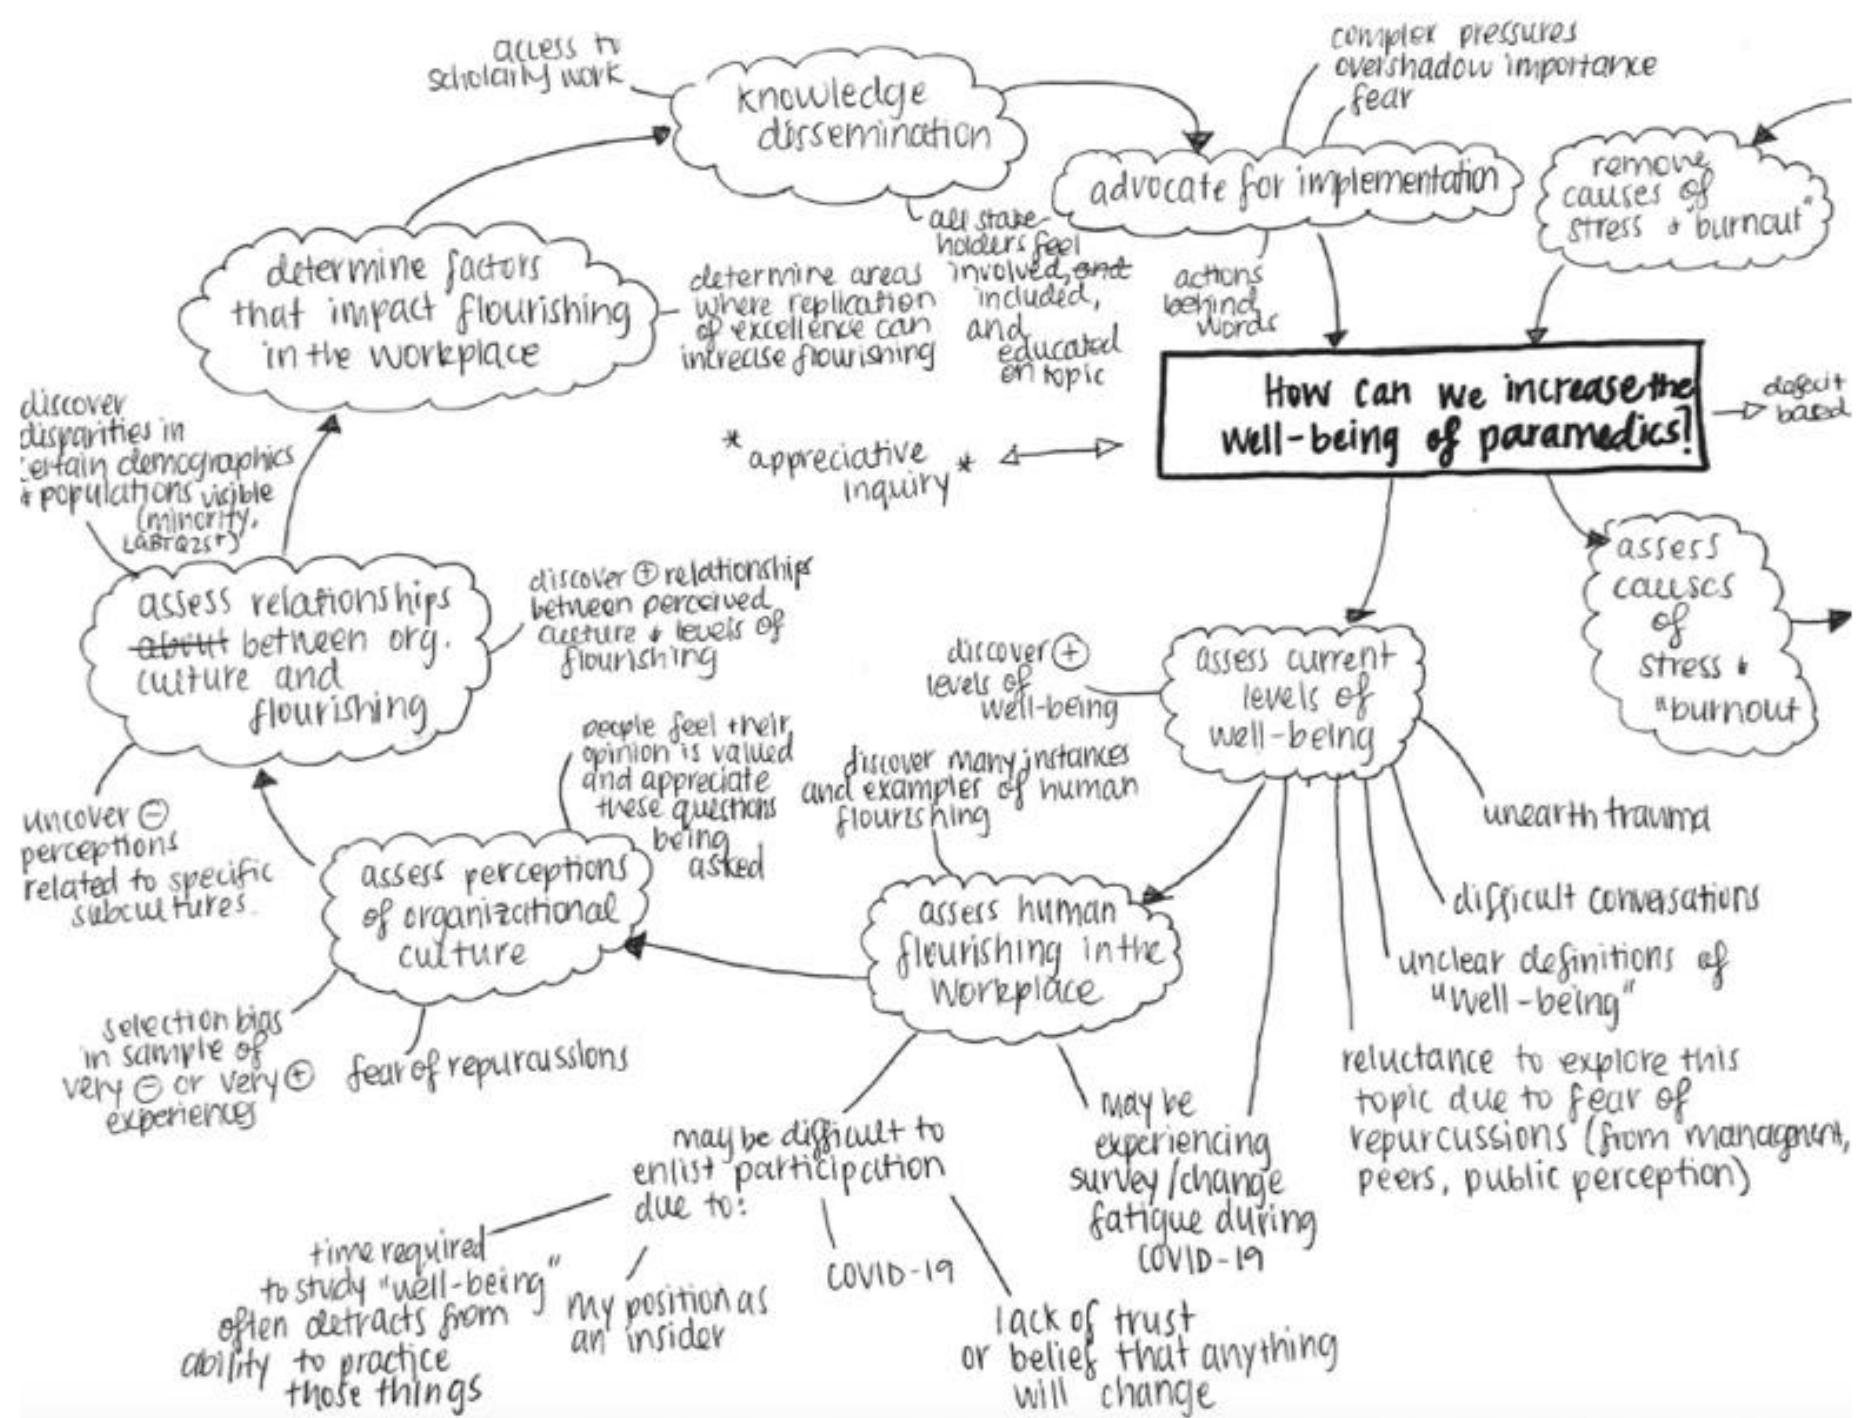 access to
scholarly work
knowledge
dissemination
complex pressures
overshadow importance
fear
advocate for implementation
remove
causes of
stress + "burnout"
all stake-
holders feel
involved, and
included,
and
educated
on topic
actions
behind
words
determine factors
that impact flourishing
in the workplace
determine areas
where replication
of excellence can
increase flourishing
How can we increase the
well-being of paramedics?
deficit
based
*appreciative
inquiry*
discover
disparities in
certain demographics
+ populations visible
(minority,
LGBTQ2S+)
assess relationships
about between org.
culture and
flourishing
discover ⊕ relationships
between perceived
culture + levels of
flourishing
assess
causes
of
stress +
"burnout
discover ⊕
levels of
well-being
assess current
levels of
well-being
people feel their
opinion is valued
and appreciate
these questions
being
asked
discover many instances
and examples of human
flourishing
uncover ⊖
perceptions
related to specific
subcultures.
assess perceptions
of organizational
culture
assess human
flourishing in the
workplace
unearth trauma
difficult conversations
unclear definitions of
"well-being"
reluctance to explore this
topic due to fear of
repurcussions (from managment,
peers, public perception)
selection bias
in sample of
very ⊖ or very ⊕
experiences
fear of repurcussions
may be difficult to
enlist participation
due to:
may be
experiencing
survey/change
fatigue during
COVID-19
time required
to study "well-being"
often detracts from
ability to practice
those things
my position as
an insider
COVID-19
lack of trust
or belief that anything
will change